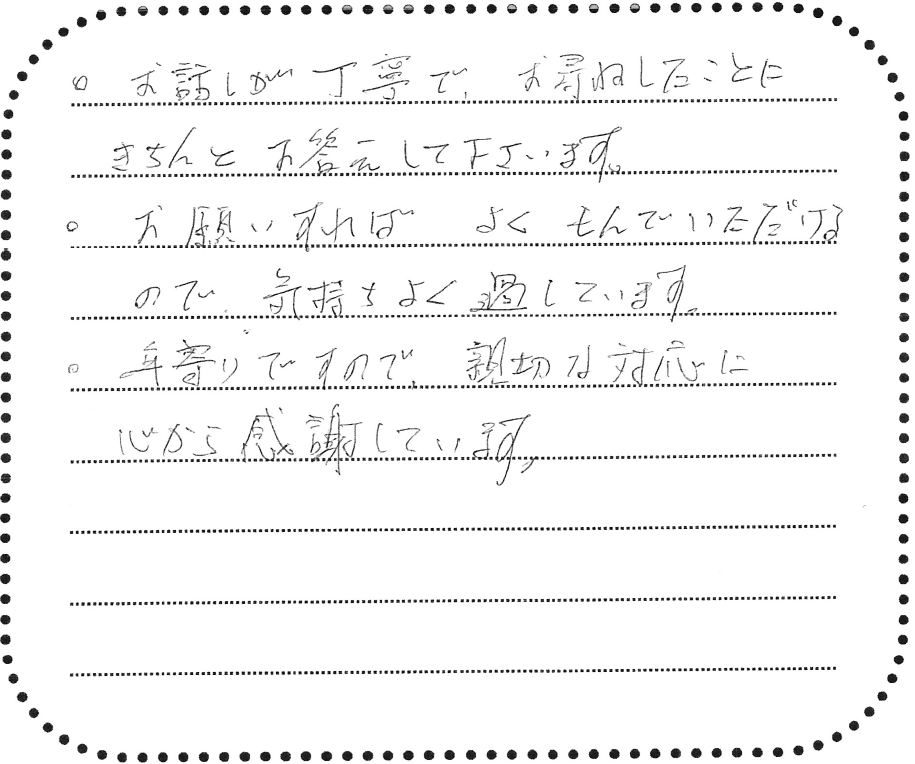 ○ お話しが丁寧で、お尋ねしたことに
きちんとお答えして下さいます。
○ お願いすれば よくもんでいただける
ので、気持ちよく過しています。
○ 年寄りですので、親切な対応に
心から感謝しています。